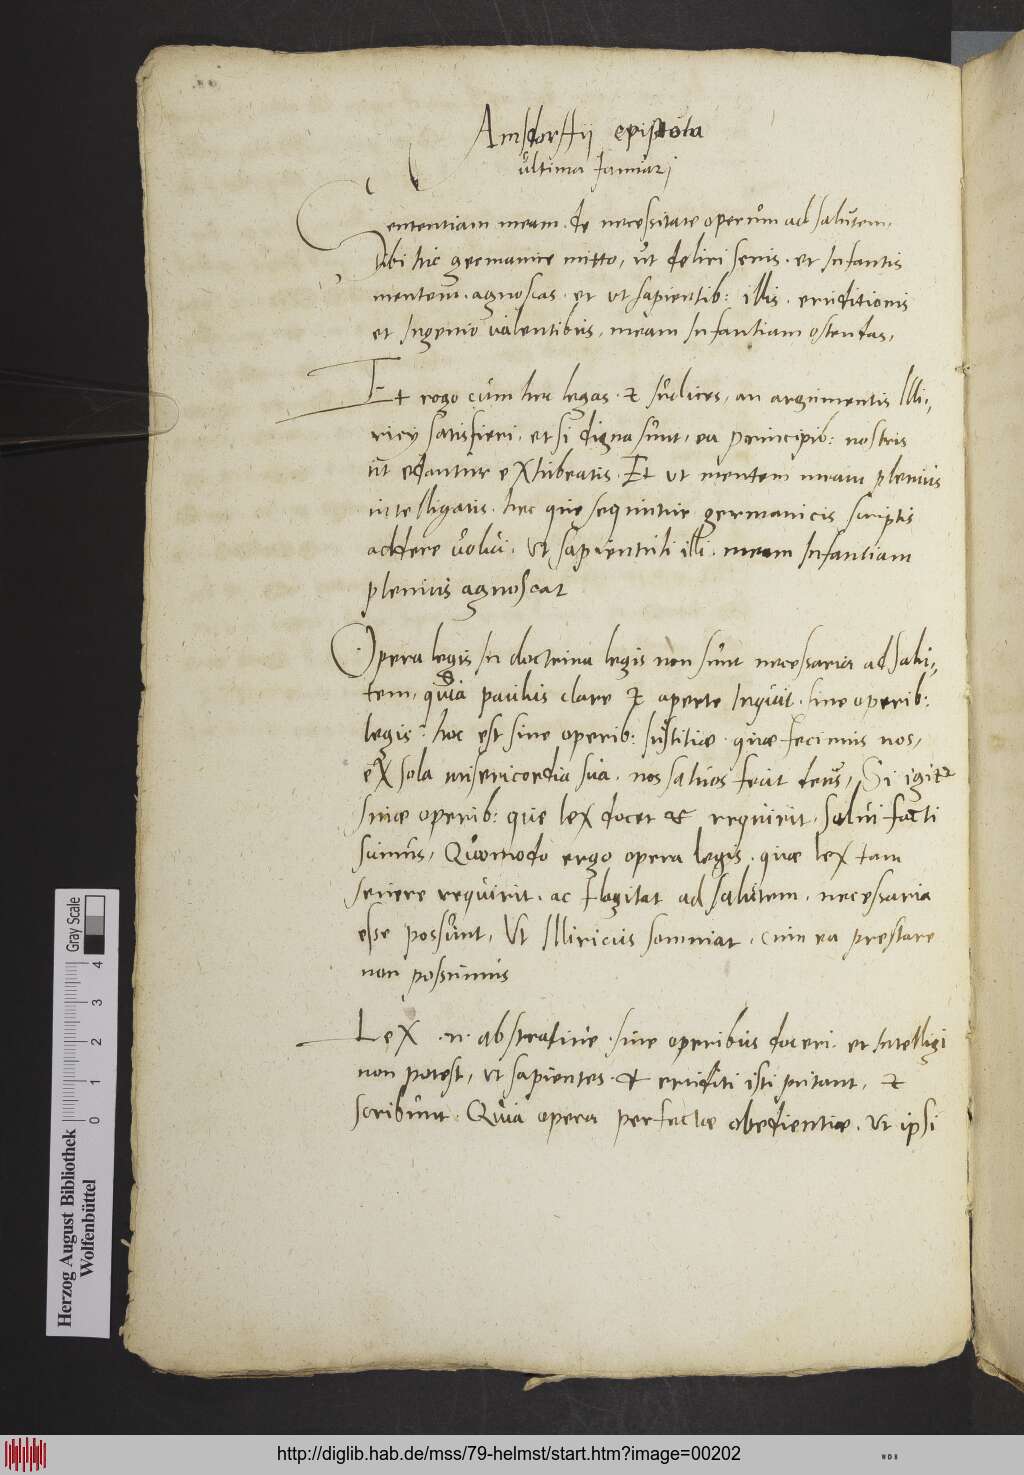 Amsdorffij epistola
ultima Januarj
Sententiam meam de necessitate operum ad salutem,
tibi hic germanice mitto, ut deliri senis et Infantis
mentem agnoscas et ut sapientib: illis eruditionis
et Ingenio valentibus, meam Infantiam ostendas,
Et rogo cum hec legas & Iudices, an argumentis Illi-,
rici satisfieri, et si digna sunt, ea principib: nostris
ut edantur exhibeatis. Et ut mentem meam plenius
intelligatis hec que sequuntur germanicis scriptis
addere volui. Ut sapientuli illi meam Infantiam
plenius agnoscat
Opera legis In doctrina legis non sunt necessaria ad salu-,
tem, quia paulus clare & aperte Inquit sine operib:
legis: hoc est sine operib: Iustitiae quae fecimus nos,
ex sola misericordia sua, nos salvos fecit deus, Si igitur
sine operib: que lex docet & requirit, salui facti
sumus, Quomodo ergo opera legis, quae lex tam
seuere requirit ac flagitat ad salutem necessaria
esse possunt, Ut Illiricus somniat, cum ea prestare
non possumus
Lex .n. abstractiue sine operibus doceri et Intelligi
non potest, ut sapientes & eruditi isti putant, &
scribunt. Quia opera perfectae obedientiae, ut ipsi
Gray Scale
4
3
2
1
0
Herzog August Bibliothek
Wolfenbüttel
http://diglib.hab.de/mss/79-helmst/start.htm?image=00202